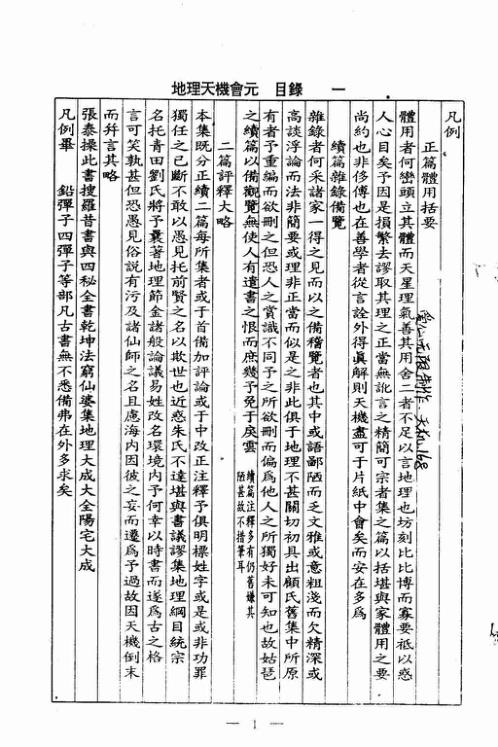 地理天機會元　目錄　一
凡例
正篇體用括要
體用者何巒頭立其體而天星理氣善其用舍二者不足以言地理也坊刻比比博而寡要祇以惑
人心目矣予因是損繁去謬取其理之正當無訛言之精簡可宗者集之篇以括堪與家體用之要
尚約也非侈博也在善學者從言詮外得眞解則天機盡可于片紙中會矣而安在多爲
續篇雜錄備覽
雜錄者何采諸家一得之見而以之備稽覽者也其中或語鄙陋而乏文雅或意粗淺而欠精深或
高談浮論而法非簡要或理非正當而似是之非此俱于地理不甚關切初具出顧氏舊集中所原
有者予重編而欲刪之但恐人之賞識不同予之所欲刪而偏爲他人之所獨好未可知也故姑琶
之續篇以備觀覽無使人有遺書之恨而庶幾予免于戾雲
續篇注釋多有仍舊嫌其
陋甚故不措筆耳
二篇評釋大略
本集既分正續二篇每所集者或于首備加評論或于中改正注釋予俱明標姓字或是或非功罪
獨任之已斷不敢以愚見托前賢之名以欺世也近惑朱氏不達堪與書議謬集地理綱目統宗
名托青田劉氏將予曩著地理節金諸般論議易姓改名環境內予何幸以時書而遂爲古之格
言可笑孰甚但恐愚見俗說有污及諸仙師之名且慮海內因彼之妄而遷爲予過故因天機倒末
而幷言其略
張泰操此書搜羅昔書與四秘全書乾坤法窮仙婆集地理大成大全陽宅大成
凡例畢　鉛彈子四彈子等部凡古書無不悉備弗在外多求矣
— 1 —